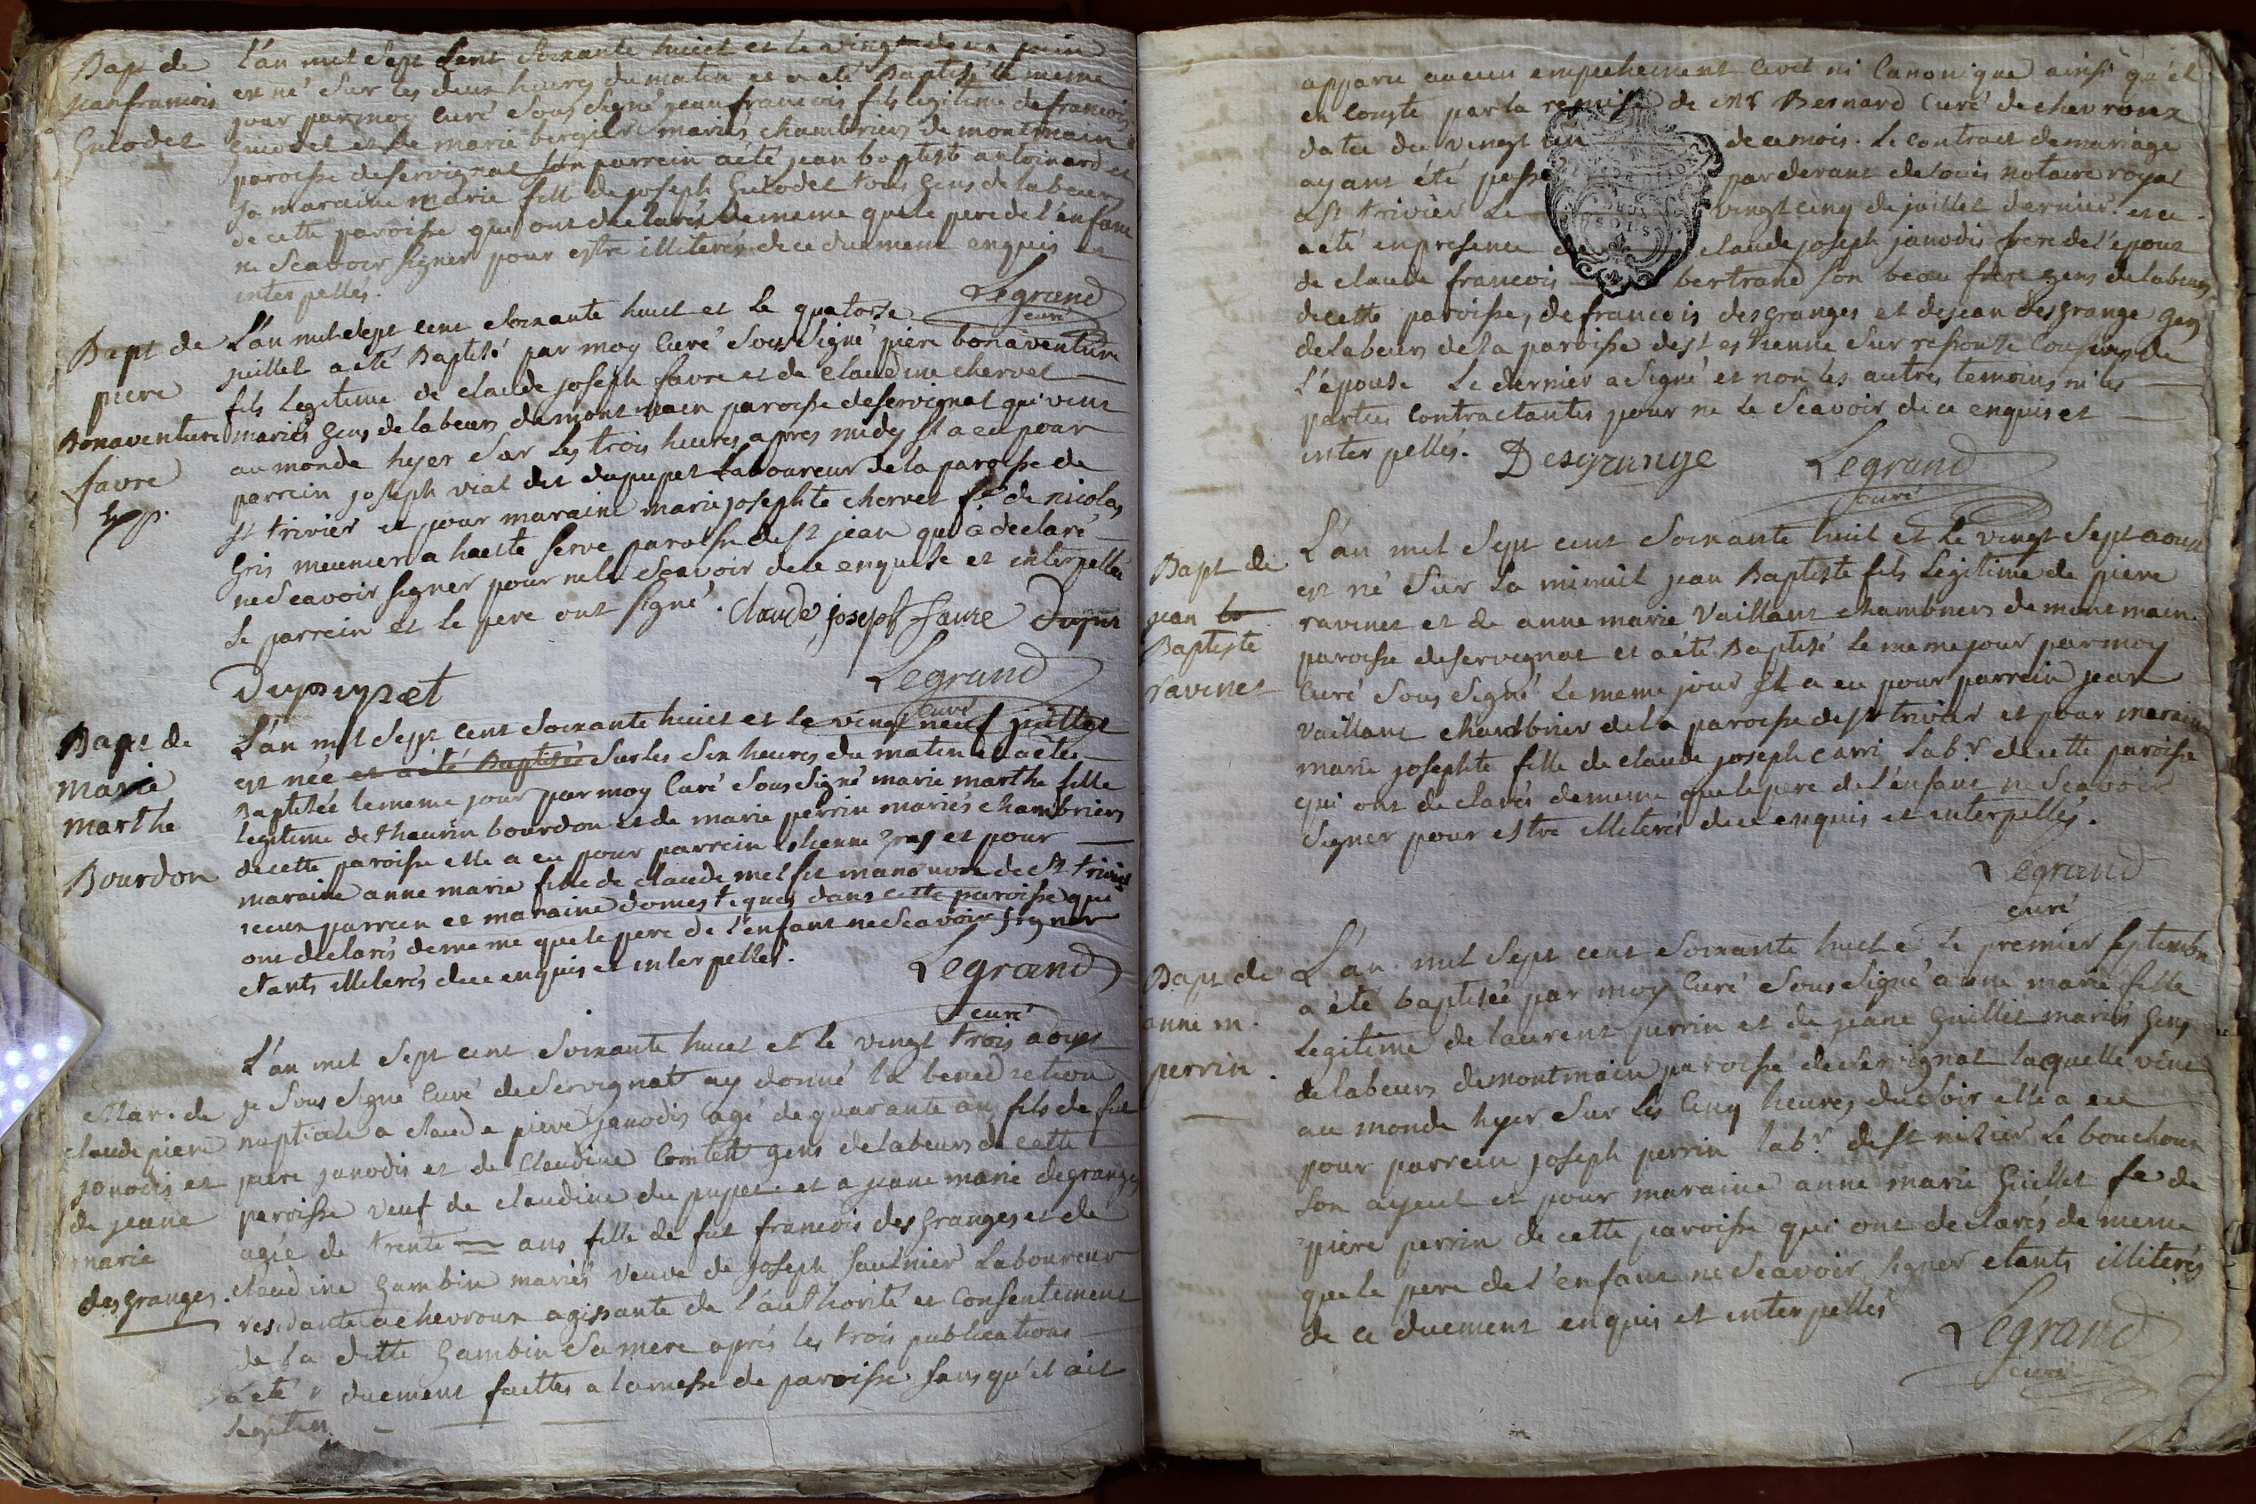 Bap de
jean francois
Guiodet
L'an mil sept cent soixante huict et le vingt deux juin
est né sur les deux heures du matin et a eté Baptisé le meme
jour par moy Curé sous signé jean francois fils legitime de francois
Guiodet et de marie bergier mariés chambriers de montmain
paroisse de servignat son parrein a été jean baptiste antoinard et
sa maraine marie fille de joseph Guiodet tous gens de labeurs
de cette paroisse qui ont declarés de meme que le pere de l'enfant
ne scavoir signer pour estre illiterés de ce duement enquis et
interpellés.
Legrand
curé
Bapt de
piere
Bonaventure
favre
L'an mil sept cent soixante huict et le quatorze
juillet a eté Baptisé par moy Curé sous signé piere bonaventure
fils legitime de claude joseph favre et de claudine chervet
mariés gens de labeurs du mont main paroisse de servignat qui vint
au monde hyer sur les trois heures apres midy il a eu pour
parrein joseph vial dit dupupet laboureur de la paroisse de
st trivier et pour maraine marie josephte chervet fe de nicolas
Gris meunier a haute serve paroisse de st jean qui a declaré
ne scavoir signer pour ne le scavoir de ce enquise et interpellée
le parrein et le pere ont signé. Claude joseph faure
Dupupet
Legrand
curé
Bapt de
marie
marthe
Bourdon
L'an mil sept cent soixante huict et le vingt neuf juillet
est née et a été Baptisée sur les six heures du matin et a éte
Baptisée le meme jour par moy Curé sous signé marie marthe fille
legitime de thaurin bourdon et de marie perrin mariés chambriers
de cette paroisse elle a eu pour parrein etienne gras et pour
maraine anne marie fille de claude manouvre de St trivier
iceux parrein et maraine domestiques dans cette paroisse qui
ont declarés de meme que le pere de l'enfant ne scavoir signer
etants illiterés de ce enquis et interpellés.
Legrand
curé
Mar. de
claude piere
janodis et
de jeane
marie
desgranges.
L'an mil sept cent soixante huict et le vingt trois aoust
je sous signé Curé de servignat ay donné la benediction
nuptiale a claude piere janodis agé de quarante ans fils de fut
piere janodis et de Claudine Comtet gens de labeurs de cette
paroisse veuf de claudine du pupet et a jeane marie degranges
agée de trente ans fille de fut francois des granges et de
claudine Gambin mariés veuve de joseph saulnier Laboureur
residante a chevroux agissante de l'authorité et consentement
de la ditte Gambin sa mere aprés les trois publications
duement faittes a la messe de paroisse sans qu'il ait
a eté
legitim
apparu aucun empechement Civil ni Canonique ainsi qu'il
en conste par la remise de Mr Bernard Curé de chevroux
datée du vingt un de ce mois. Le contract de mariage
ayant été passé par devant notaire royal
a st trivier Le vingt cinq de juillet dernier. et ce
a été en presence claude joseph janodis frere de l'epoux
de claude francois bertrand son beau frere gens de labeurs
de cette paroisse, de francois des granges et de jean desgrange gens
de labeurs de la paroisse de st estienne sur ressouse cousins de
l'epouse Le dernier a signé et non les autres temoins ni les
parties Contractantes pour ne le scavoir de ce enquis et
interpellés.
Desgrange
Legrand
curé
Bapt de
jean
Baptiste
ravinet
L'an mil sept cent soixante huit et le vingt sept aoust
est né sur la minuit jean Baptiste fils legitime de piere
ravinet et de anne marie Vaillant chambriers de mont main
paroisse de servignat et a été Baptisé le meme jour par moy
Curé sous signé le meme jour il a eu pour parrein jean
Vaillant chambrier de la paroisse de st trivier et pour maraine
marie josephte fille de claude joseph carri labr. de cette paroisse
qui ont declarés de meme que le pere de l'enfant ne scavoir
signer pour estre illiterés de ce enquis et interpellés.
Legrand
curé
Bapt de
anne m.
perrin.
L'an mil sept cent soixante huit et le premier septembre
a été baptisée par moy Curé sous signé anne marie fille
legitime de laurent perrin et de jeane Guillet mariés gens
de labeurs de montmain paroisse de servignat laquelle vint
au monde hyer sur les cinq heures du soir elle a eu
pour parrein joseph perrin labr. de st nizier le bouchoux
son ayeul et pour maraine anne marie Guillet fe de
piere perrin de cette paroisse qui ont declarés de meme
que le pere de l'enfant ne scavoir signer etants illiterés
de ce duement enquis et interpellés
Legrand
curé